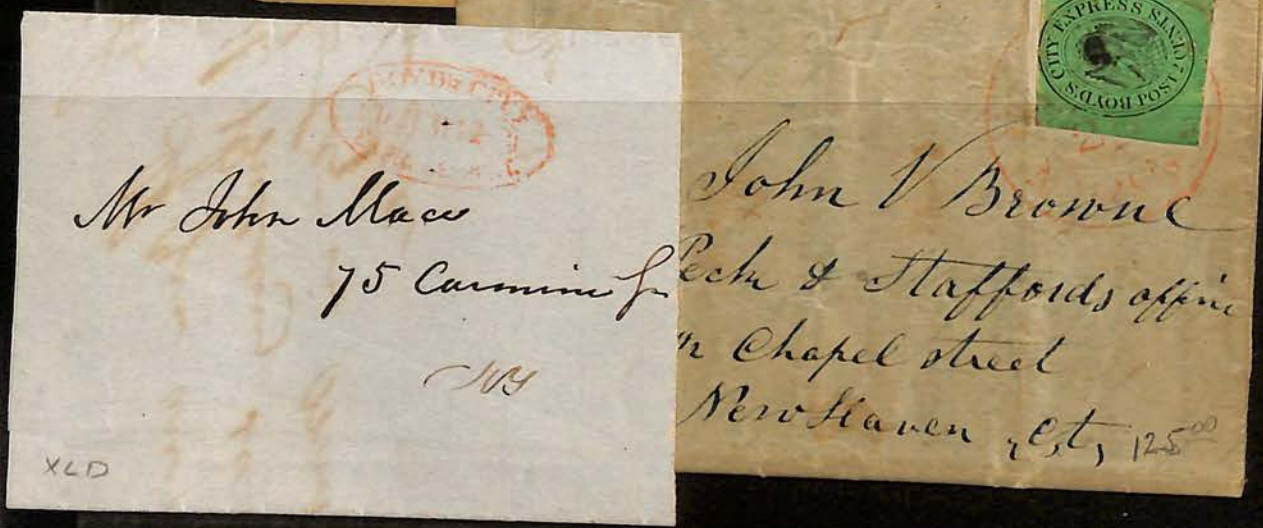 Mr John Mace
75 Carmine
NY
XLD
BOYD'S CITY EXPRESS POST 2 CENTS
John V Browne
Peck & Staffords office
Chapel street
New Haven Ct,
125⁰⁰